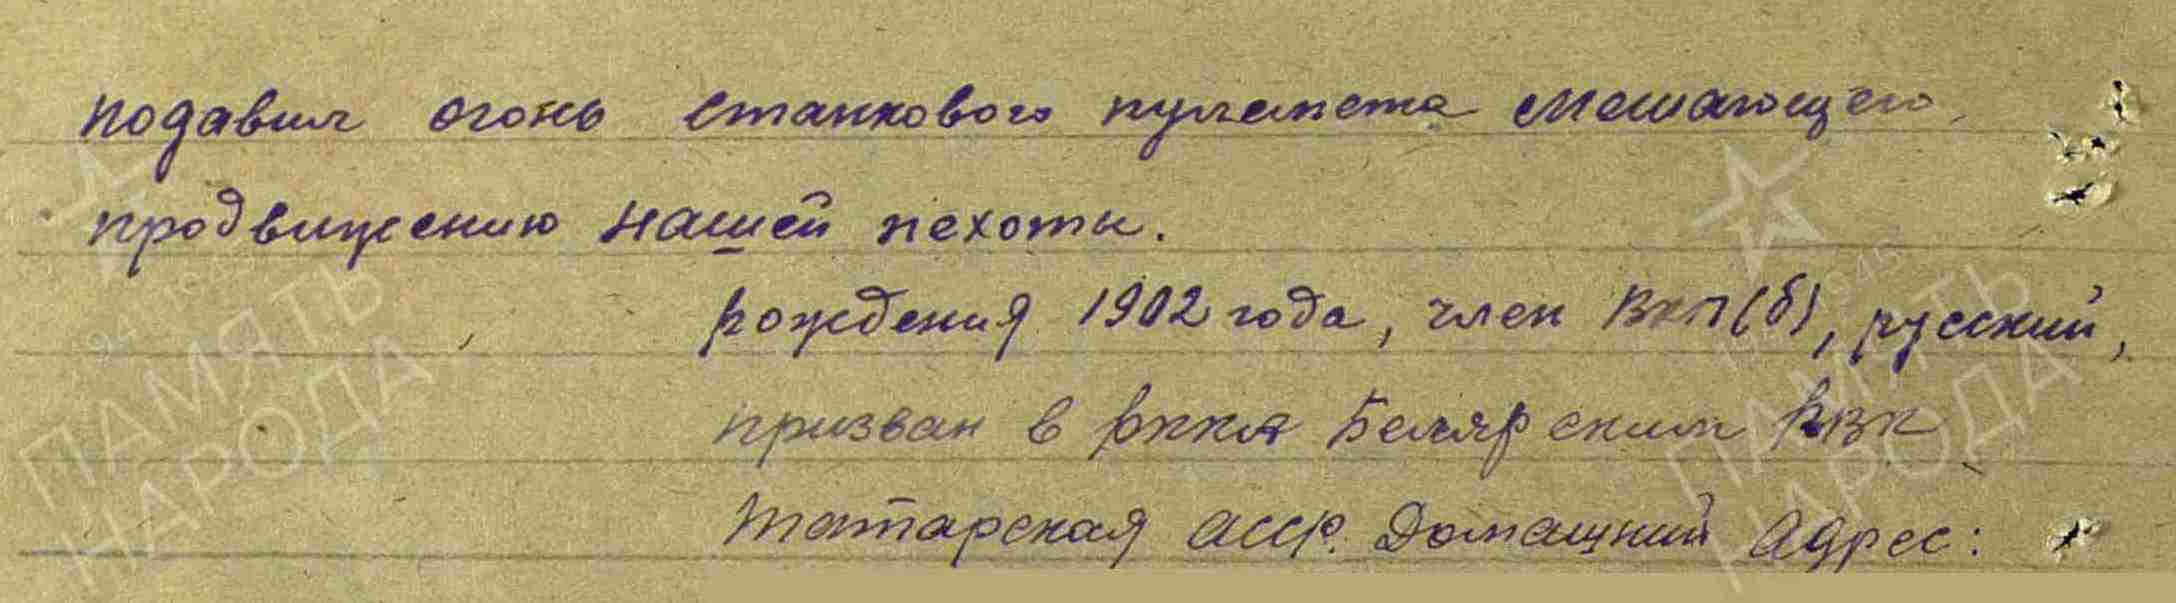 подавил огонь станкового пулемета мешающего
продвижению нашей пехоты.
рождения 1902 года, член ВКП(б), русский,
призван в РККА Белярским РВК
Татарская АССР. Домашний Адрес:
ПАМЯТЬ НАРОДА
ПАМЯТЬ НАРОДА